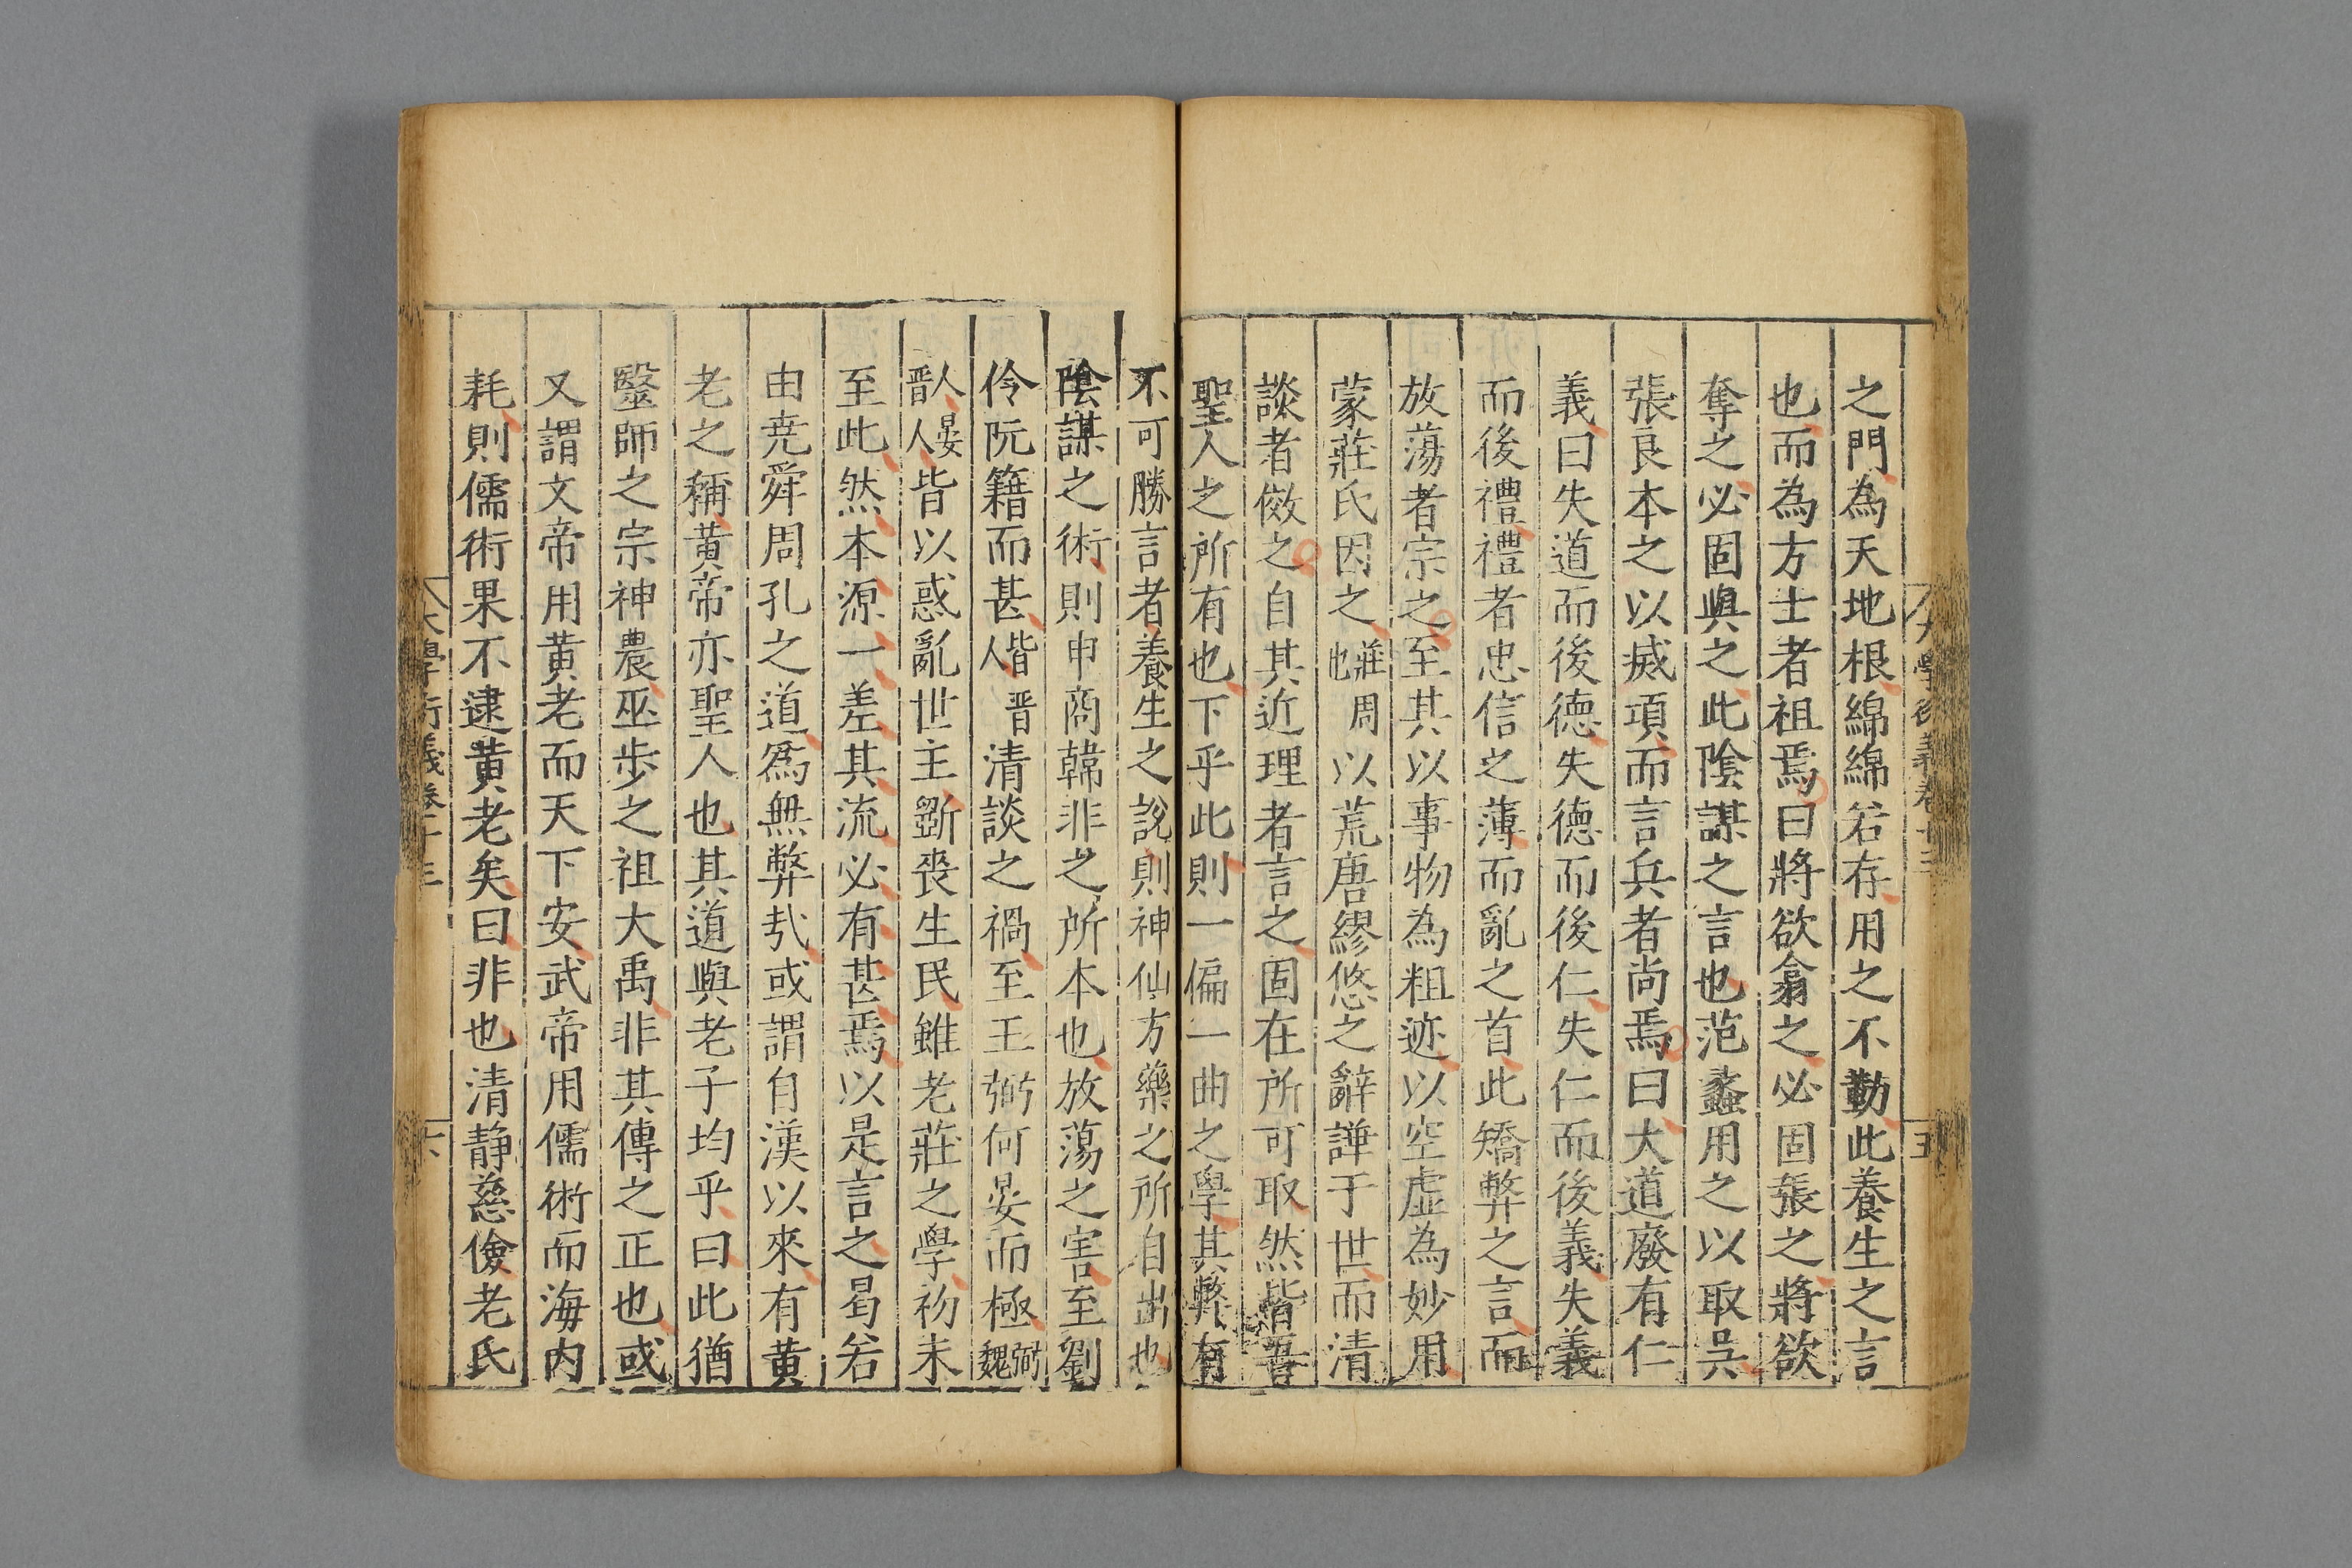 之門為天地根綿綿若存用之不勤此養生之言
也而為方士者祖焉曰將欲翕之必固張之將欲
奪之必固與之此陰謀之言也范蠡用之以取吳
張良本之以㓕項而言兵者尚焉曰大道廢有仁
義曰失道而後德失德而後仁失仁而後義失義
而後禮禮者忠信之薄而亂之首此矯弊之言而
放蕩者宗之至其以事物為粗迹以空虛為妙用
蒙莊氏因之莊周也以荒唐繆悠之辭譁于世而清
談者傚之自其近理者言之固在所可取然皆吾
聖人之所有也下乎此則一偏一曲之學其弊有
不可勝言者養生之說則神仙方藥之所自出也
陰謀之術則申商韓非之所本也放蕩之害至劉
伶阮籍而甚皆晋人清談之禍至王弼何晏而極弼魏
人晏晋人皆以惑亂世主斲喪生民雖老莊之學初未
至此然本源一差其流必有甚焉以是言之曷若
由尭舜周孔之道爲無弊㢤或謂自漢以來有黄
老之稱黄帝亦聖人也其道與老子均乎曰此猶
毉師之宗神農巫步之祖大禹非其傳之正也或
又謂文帝用黄老而天下安武帝用儒術而海内
耗則儒術果不逮黄老矣曰非也清静慈儉老氏